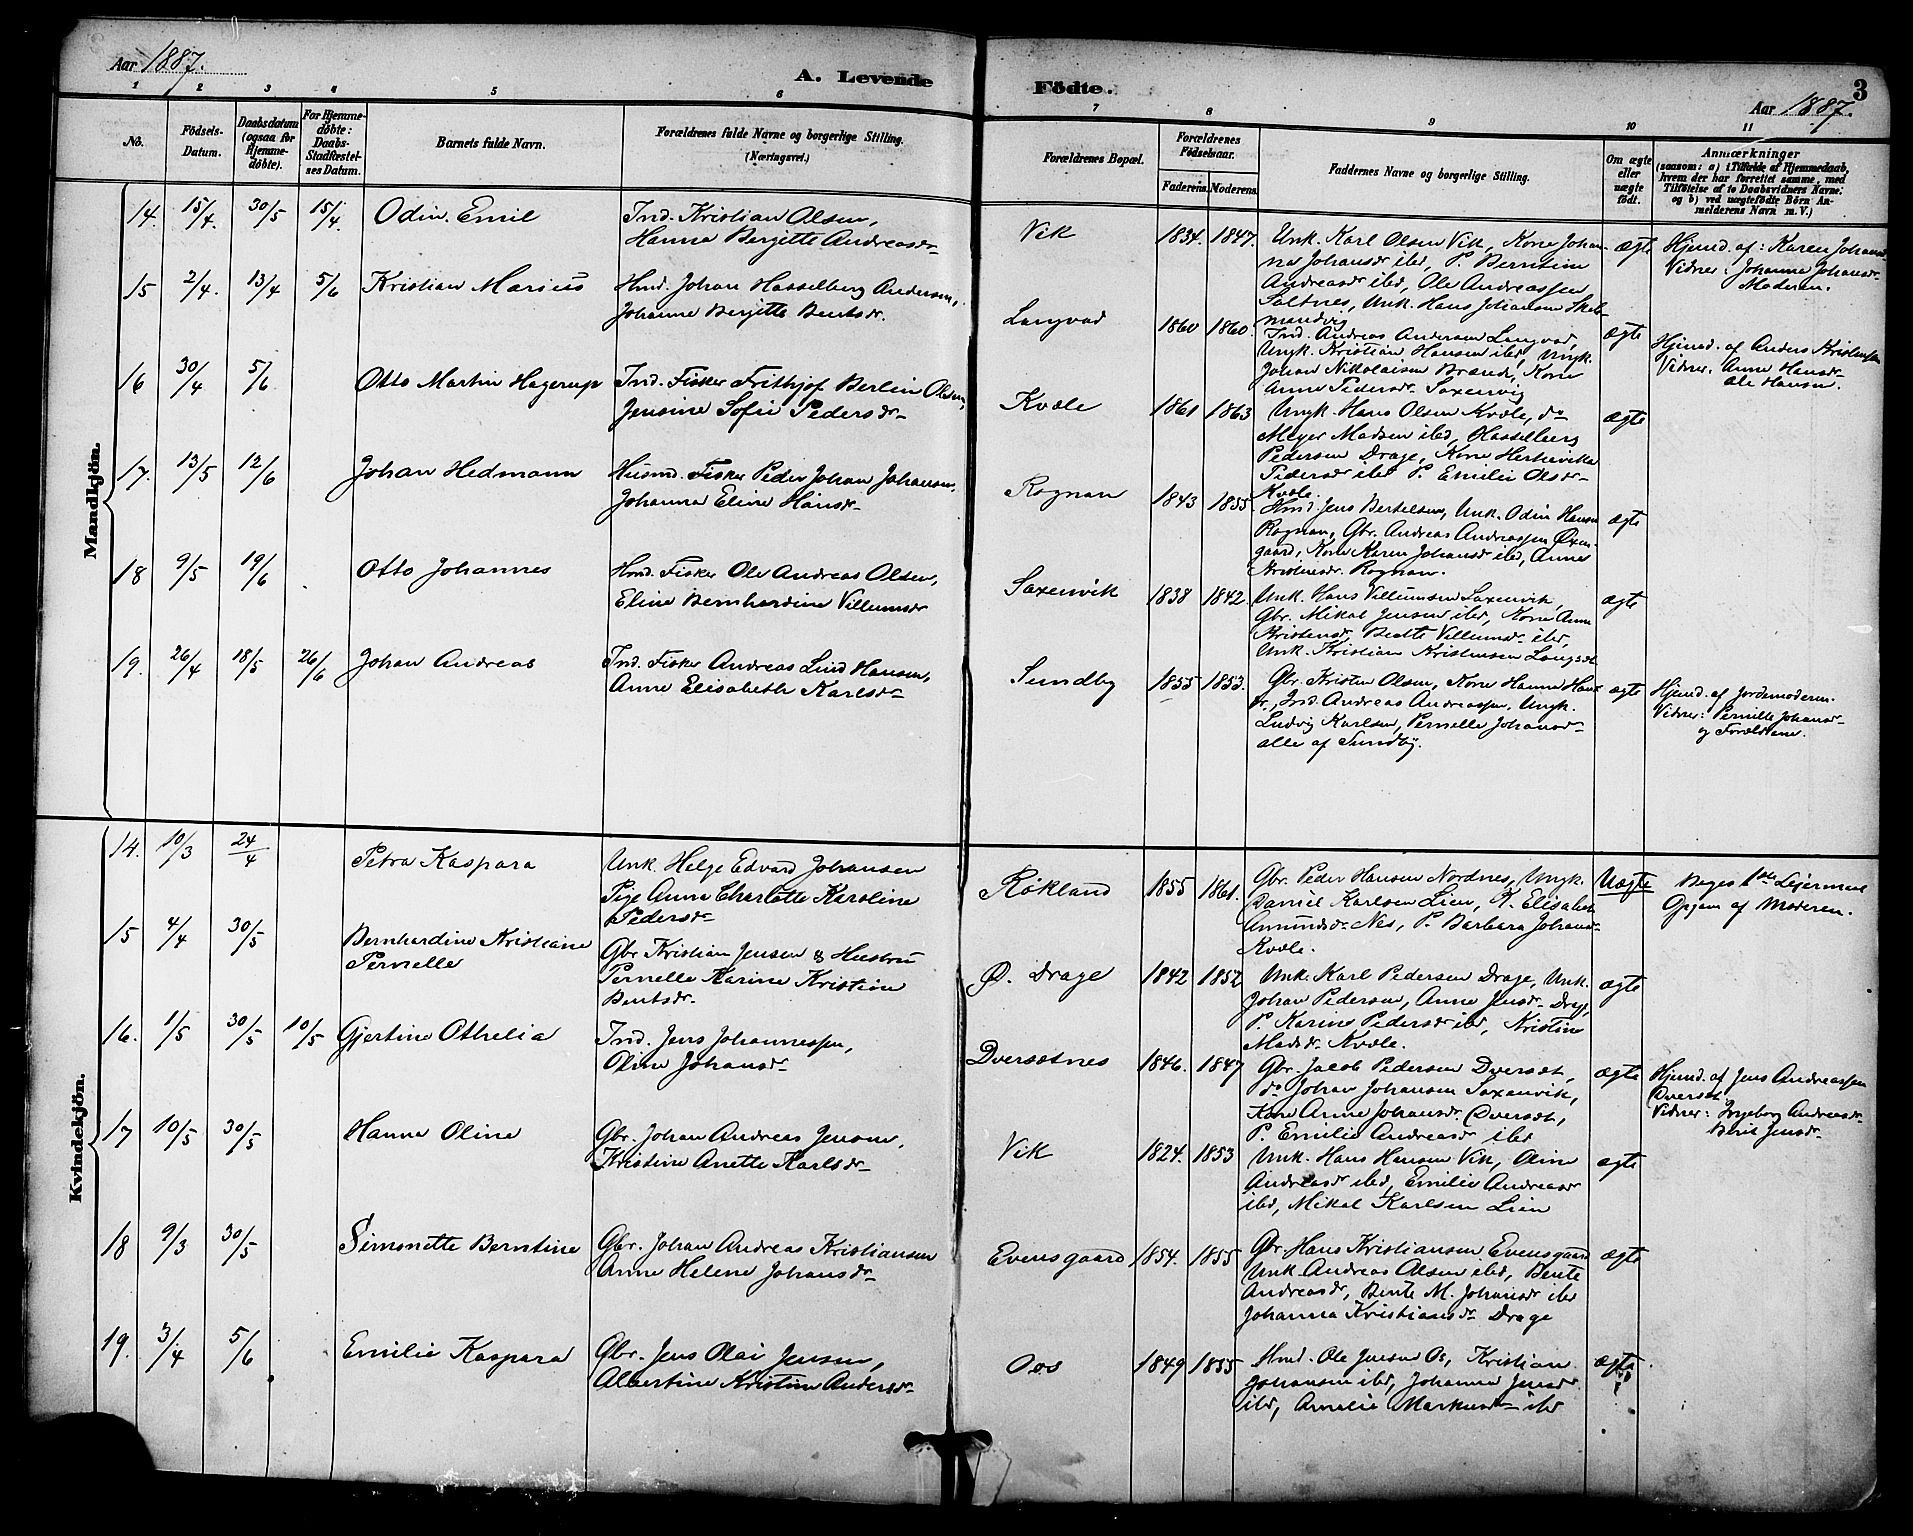 Aar 1887.
A. Levende Födte.
3
Aar 1887.
1 2 3 4 5 6 7 8 9 10 11
No.
Födsels-
Datum.
Daabsdatum
(ogsaa for
Hjemme-
döbte).
For Hjemme-
döbte:
Daabs-
Stadfæstel-
ses Datum.
Barnets fulde Navn.
Forældrenes fulde Navne og borgerlige Stilling.
(Næringsvei.)
Forældrenes Bopæl.
Forældrenes
Födselsaar.
Faderens. Moderens.
Faddernes Navne og borgerlige Stilling.
Om ægte
eller
uægte
födt.
Anmærkninger
(saasom: a) i Tilfælde af Hjemmedaab,
hvem der har forrettet samme, med
Tilföielse af to Daabsvidners Navne;
og b) ved uægtefödte Börn An-
melderens Navn m. V.)
Mandkjön.
14. 15/4. 30/5 15/4. Odin Emil
Ind. Kristian Olsen,
Hanna Bergitte Andreasdr
Vik 1834. 1847.
Unk. Karl Olsen Vik, Kone Johan-
na Johansdr ibd, P. Berntine
Andreasdr ibd, Ole Andreassen
Saltnes, Unk. Hans Johansen Skel-
mandvig
ægte
Hjemd. af: Karen Johansdr
Vidner: Johanna Johansdr
Moderen.
15 2/4. 13/4 5/6 Kristian Marius
Hmd. Johan Hasselberg Andersen,
Johanne Bergitte Bentsdr.
Langvad 1860 1860.
Ind. Andreas Andersen Langvad,
Ungk. Kristian Hansen ibd, Ungk.
Johan Nikolaisen Brænd, Kone
Anne Pedersdr. Saxenvig
ægte
Hjemd. af Anders Kristensen
Vidner: Anne Hansdr
Ole Hansen.
16 30/4 5/6 Otto Martin Hagerup
Ind. Fisker Frithjof Berlin Olsen,
Jensine Sofie Pedersdr
Kvæle 1861 1863
Ungk. Hans Olsen Kvæle, do
Meyer Madsen ibd, Hasselberg
Pedersen Drage, Kone
Pedersdr ibd P. Emilie Olsdr
Kvæle.
ægte
17. 13/5 12/6 Johan Hedmann
Husmd. Fisker Peder Johan Johansen,
Johanna Eline Hansdr
Rognan 1843 1855.
Hmd. Jens Bertelsen, Unk. Odin Hansen
Rognan, Gbr. Andreas Andreassen Øxen-
gaard, Kone Karen Johansdr ibd, Anne
Kristensdr. Rognan.
ægte
18 9/5 19/6 Otto Johannes
Hmd. Fisker Ole Andreas Olsen,
Eline Bernhardine Villumsdr
Saxenvik 1838 1842.
Unk. Hans Villumsen Saxenvik,
Gbr. Mikal Jensen ibd, Kone Anne
Kristensdr, Beatte Villumsdr ibd,
Unk. Kristian Kristensen
ægte
19. 26/4 18/5 26/6 Johan Andreas
Ind. Fisker Andreas Lind Hansen,
Anne Elisabeth Karlsdr
Sundby 1855 1853.
Gbr. Kristen Olsen, Kone Hanna
Ind. Andreas Andreassen, Ungk.
Ludvig Karlsen, Pernelle Johansdr
alle af Sundby.
ægte
Hjemd. af Jordemoderen
Vidner: Pernille Johansdr
og Forældrene.
Kvindekjön.
14. 10/3 24/4 Petra Kaspara
Unk. Helge Edvard Johansen
Pige Anne Charlotte Karoline
Pedersdr
Røkland 1855 1861.
Gbr. Peder Hansen Nordnes, Ungk.
Daniel Karlsen Lien, K. Elisabeth
Amundsdr Nes, P. Barbara Johansdr
Kvæle.
Uægte
Begges 1ste Leiermaal
Opgivn af Moderen.
15 4/4 30/5 Bernhardine Kristiane
Pernelle
Gbr Kristian Jensen & Hustru
Pernelle Karine Kristine
Bentsdr
Ø. Drage 1842 1852
Unk. Karl Pedersen Drage, Unk.
Johan Pedersen, Anne Jensdr Drage,
P. Karine Pedersdr ibd, Kristine
Madsdr Kvæle.
ægte
16. 1/5 30/5 10/5 Gjertine Othelia
Ind. Jens Johannessen,
Oline Johansdr
Dversætnes 1846. 1847
Gbr. Jacob Pedersen Dversæt,
do Johan Johansen Saxenvik,
Kone Anne Johansdr Dversæt,
P. Emilie Andreasdr ibd
ægte
Hjemd. af Jens Andreassen
Dversæt
Vidner: Ingeborg Andreasdr
Berit Jensdr
17 10/5 30/5 Hanna Oline
Gbr. Johan Andreas Jensen,
Kristine Anette Karlsdr
Vik 1824. 1853
Unk. Hans Hansen Vik, Oline
Andreasdr ibd, Emilie Andreasdr
ibd, Mikal Karlsen Lien
ægte
18 9/3 30/5 Simonette Berntine
Gbr. Johan Andreas Kristiansen
Anne Helene Johansdr
Evensgaard 1854. 1855
Gbr. Hans Kristiansen Evensgaard
Unk. Andreas Olsen ibd, Bente
Andreasdr, Bente M. Johansdr ibd
Johanna Kristiansdr Drage
ægte
19. 3/4 5/6 Emilie Kaspara
Gbr. Jens Olai Jensen,
Albertine Kristine Andersdr
Oos 1849 1855
Hmd. Ole Jensen Os, Kristian
Johansen ibd, Johanna Jensdr
ibd, Amelie Markusdr ibd
ægte